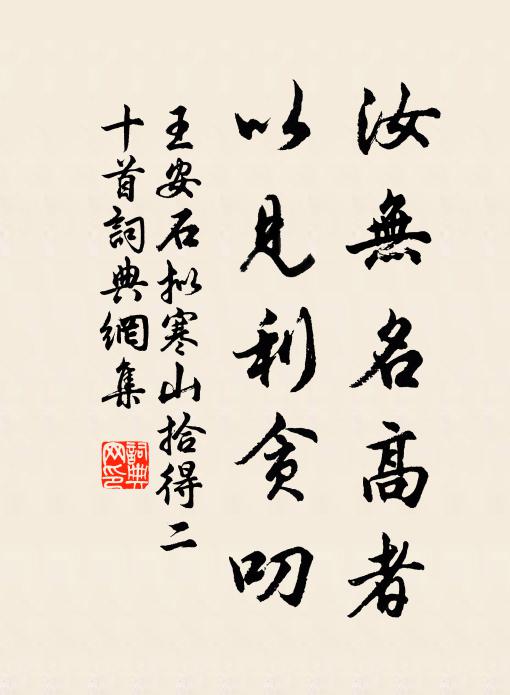 汝無名高者
以見利貪叨
王安石拟寒山拾得二
十首詞典網集
詞典网印